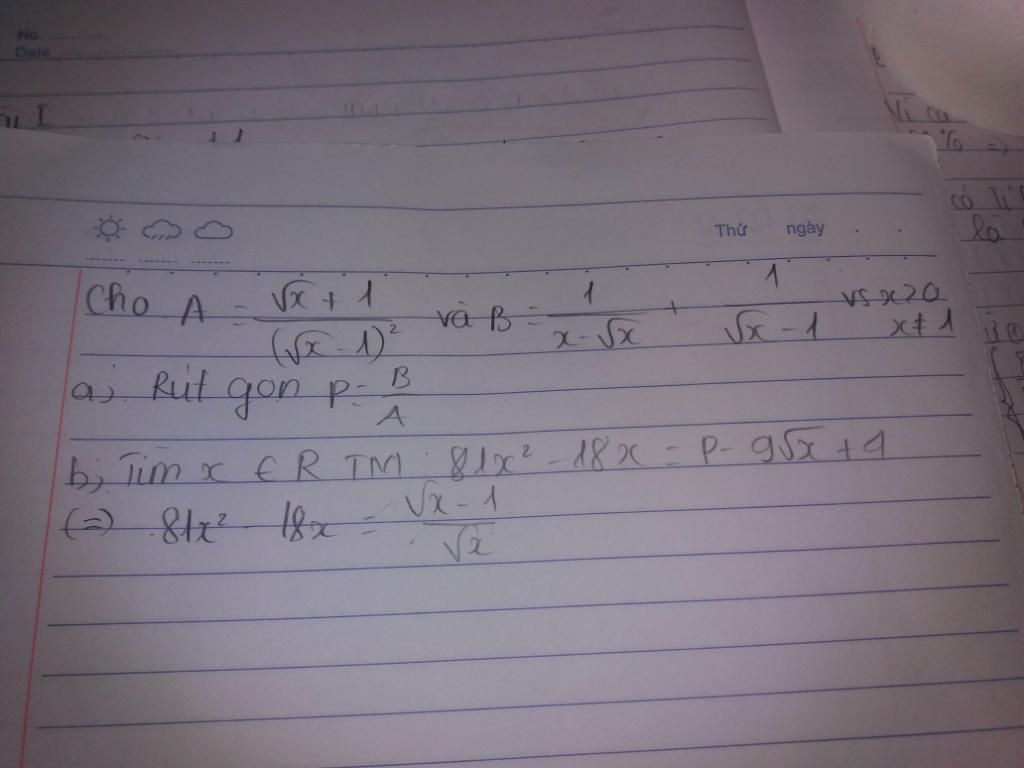 No. ..........
Date ....................
Thứ ngày . .
Cho A = (√x + 1)/(√x - 1)² và B = 1/(x - √x) + 1/(√x - 1) vs x>0
x≠1
a; Rút gọn P = B/A
b; Tìm x ∈ R TM : 81x² - 18x = P - 9√x + 4
(=) 81x² - 18x = (√x - 1)/√x